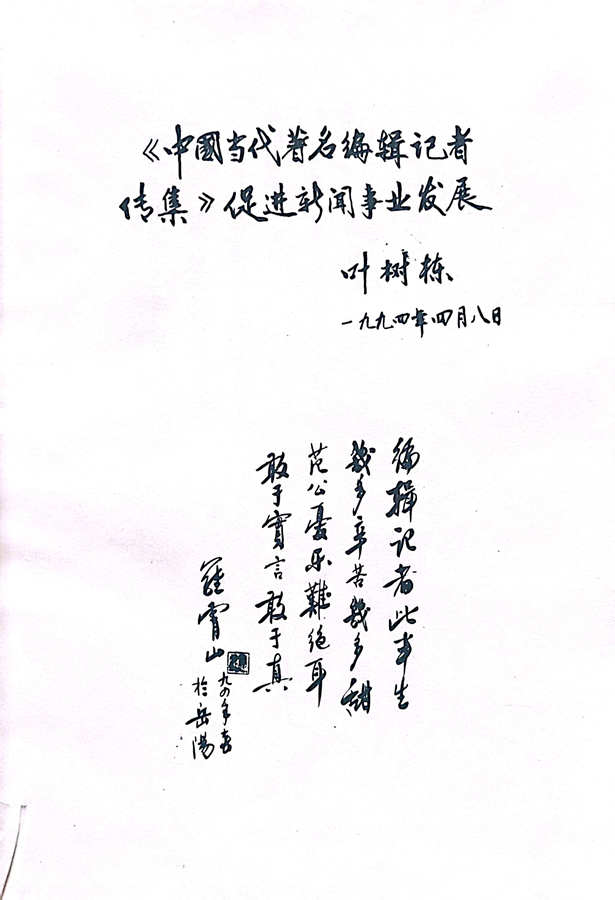 《中國当代著名编辑记者
传集》促进新闻事业发展
叶树栋
一九九四年四月八日
编辑记者此半生
幾多辛苦幾多甜
范公憂乐難绝耳
敢于實言敢于真
羅霄山
九四年春
於岳陽